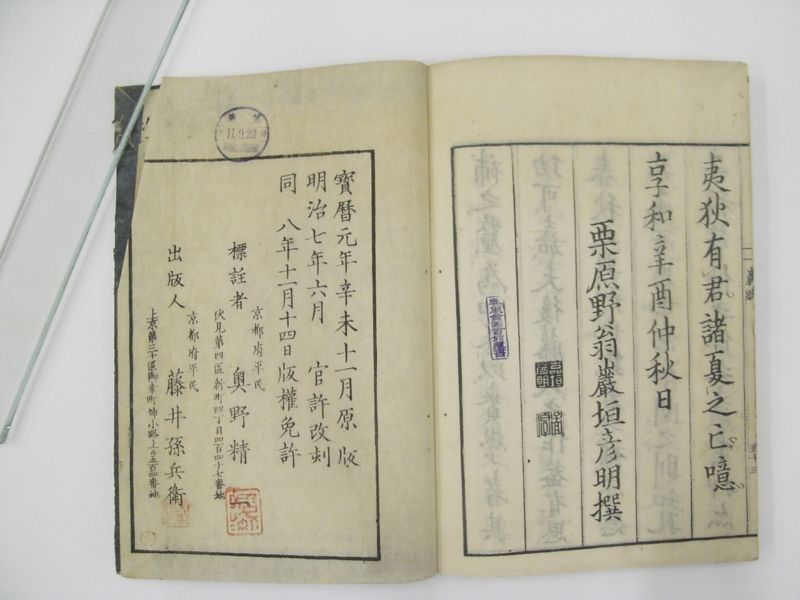 夷狄有君諸夏之亡噫
享和辛酉仲秋日
栗原野翁巖垣彦明撰
寶曆元年辛未十一月原版
明治七年六月　官許改刻
同　八年十一月十四日版權免許
京都府平民
標註者　奥野精一
伏見第四區新町四丁目四百四十七番地
京都府平民
出版人　藤井孫兵衛
上京第三十區御幸町姉小路上ル
11.9.23